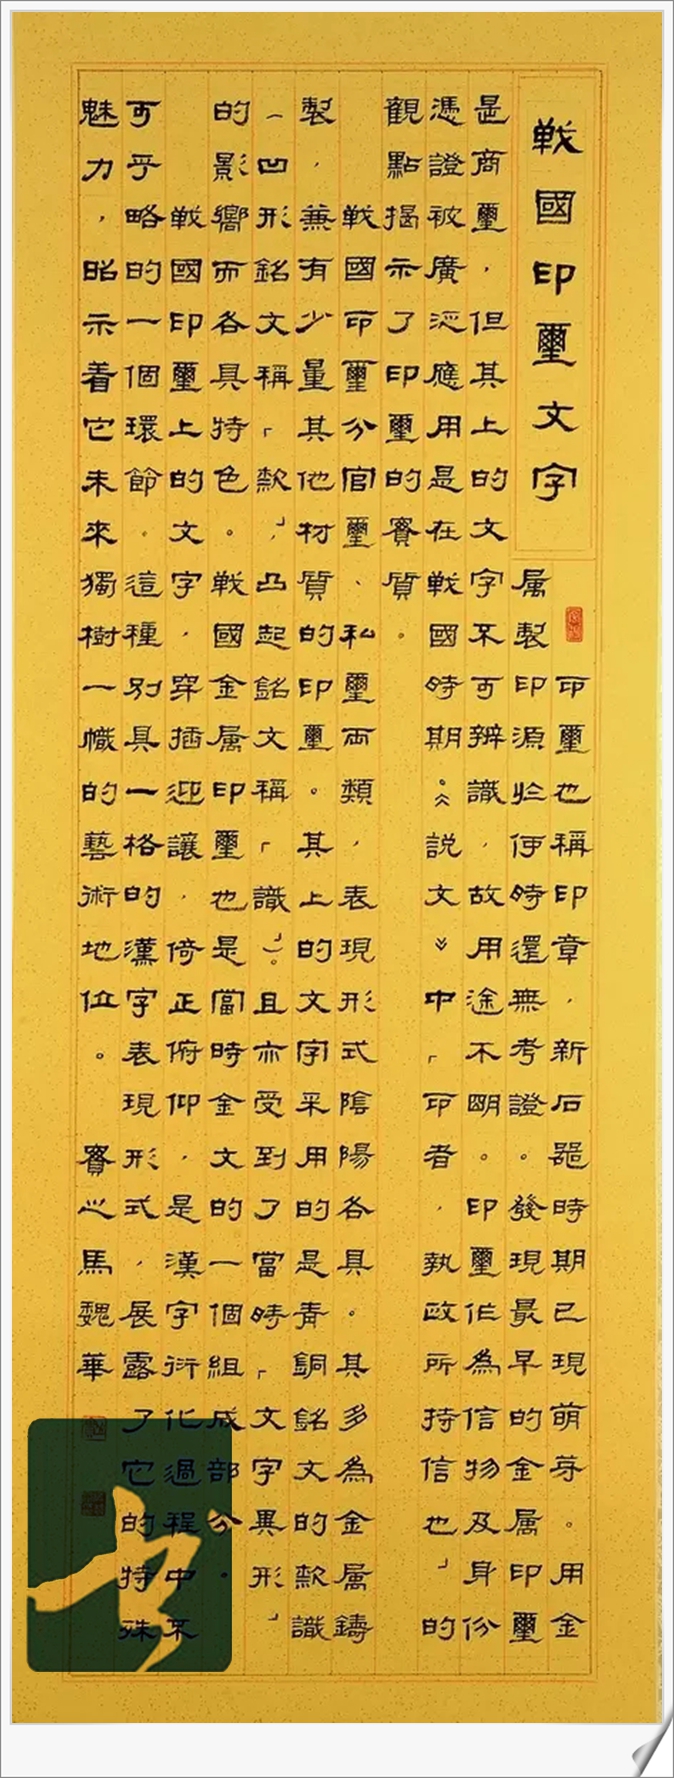 戦國印璽文字
印璽也稱印章，新石器時期已現萌芽。用金
属製印源於何時還無考證。發現最早的金属印璽
是商璽，但其上的文字不可辨識，故用途不明。印璽作為信物及身份
憑證被廣泛應用是在戦國時期。《説文》中「印者，執政所持信也」的
觀點揭示了印璽的實質。
戦國印璽分官璽、私璽兩類，表現形式陰陽各具。其多為金属鑄
製，兼有少量其他材質的印璽。其上的文字采用的是青銅銘文的款識
（凹形銘文稱「款」，凸起銘文稱「識」。且亦受到了當時「文字異形」
的影響而各具特色。戦國金属印璽也是當時金文的一個組成部分。
戦國印璽上的文字，穿插迎讓，倚正俯仰，是漢字衍化過程中不
可乎略的一個環節。這種別具一格的漢字表現形式，展露了它的特殊
魅力，昭示着它未來獨樹一幟的藝術地位。 實心馬魏華